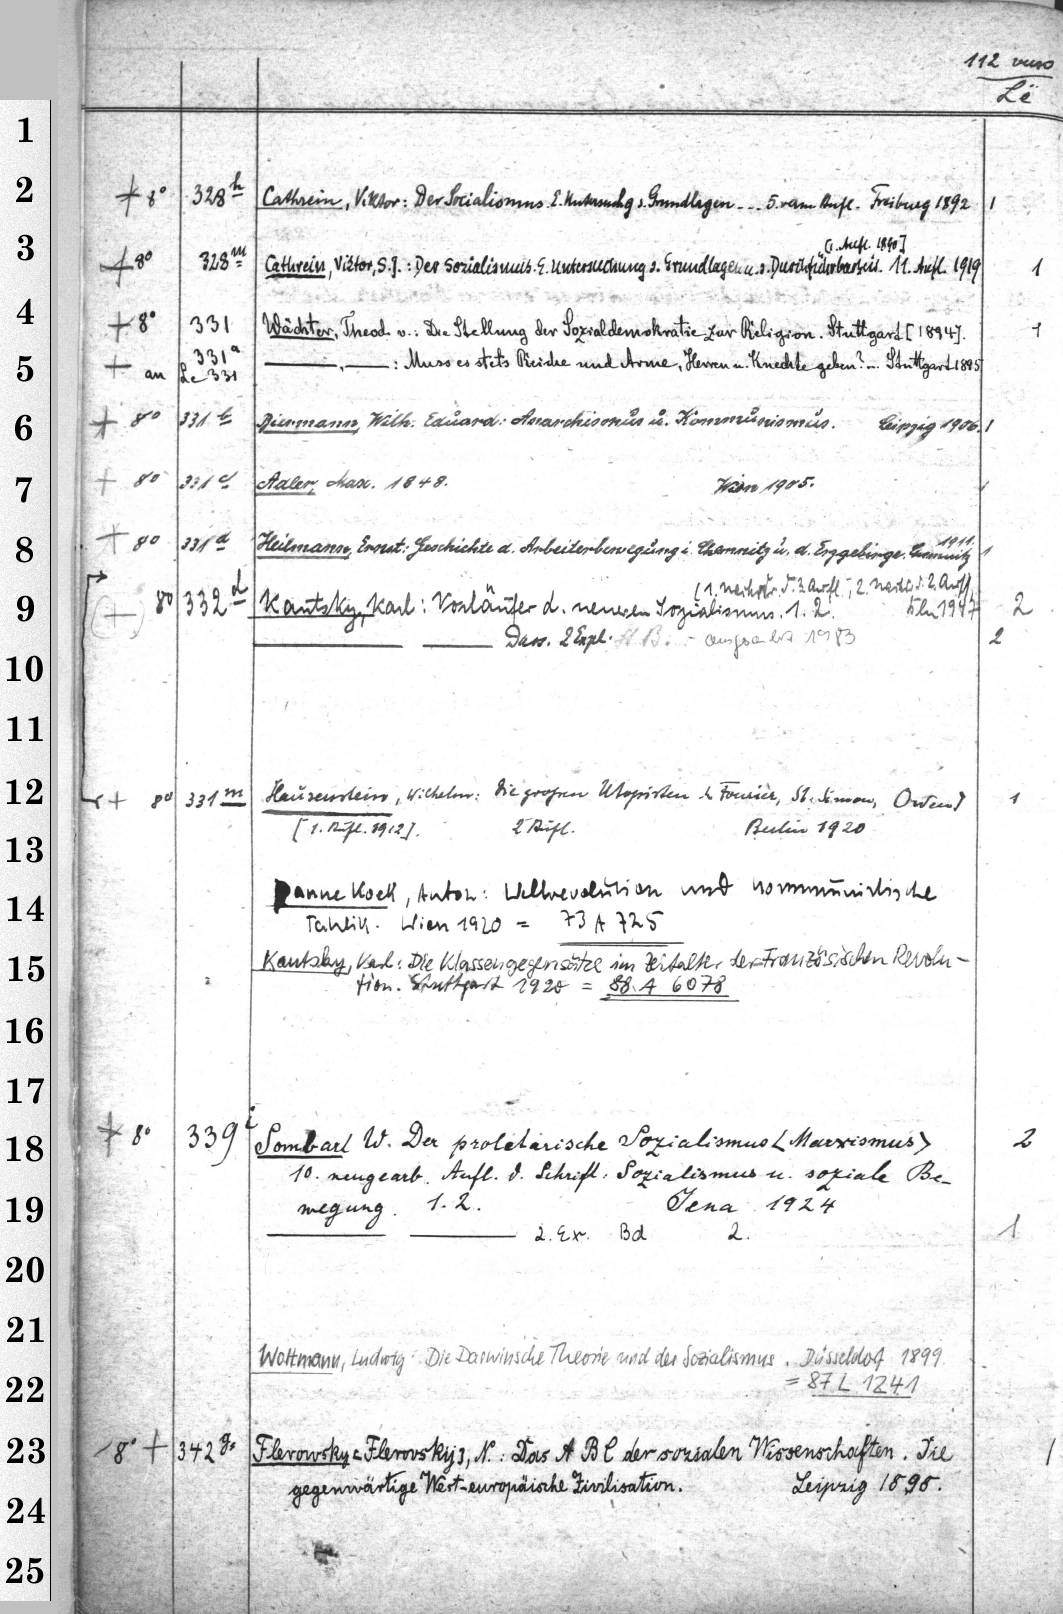 112 verso
Lë
1
2 + 8° 328h Cathrein, Viktor: Der Socialismus. E. Untersuchg s. Grundlagen ... 5. verm Aufl. Freiburg 1892 1
[1. Aufl. 1890]
3 + 8° 328m Cathrein, Victor, S.J.: Der Sozialismus. E. Untersuchung s. Grundlagen u. s. Durchführbarkeit. 11. Aufl. 1919 1
4 + 8° 331 Wächter, Theod. v.: Die Stellung der Sozialdemokratie zur Religion. Stuttgart [1894]. 1
5 + an Le 331 331a ——, ——: Muss es stets Reiche und Arme, Herren u. Knechte geben? ... Stuttgart 1895
6 + 8° 331b Biermann, Wilh. Eduard: Anarchismus u. Kommunismus. Leipzig 1906. 1
7 + 8° 331c Adler, Max. 1848. Wien 1905. 1
8 + 8° 331d Heilmann, Ernst: Geschichte d. Arbeiterbewegung i. Chemnitz u. d. Erzgebirge. Chemnitz 1911. 1
(1. Neudr. d. 3. Aufl., 2. Neudr. d. 2. Aufl)
9 (+) 8° 332d Kautsky, Karl: Vorläufer d. neueren Sozialismus. 1. 2. Bln 1947 2
—— —— Dass. 2 Expl. 1983 2
10
11
12 + 8° 331m Hausenstein, Wilhelm: Die großen Utopisten < Fourier, St. Simon, Owen> 1
[1. Aufl. 1912]. 2 Aufl. Berlin 1920
13
14 Pannekoek, Anton: Weltrevolution und kommunistische
Taktik. Wien 1920 = 73 A 725
15 Kautsky, Karl: Die Klassengegensätze im Zeitalter der Französischen Revolu-
tion. Stuttgart 1920 = 88 A 6078
16
17
18 + 8° 339i Sombart W. Der proletarische Sozialismus <Marxismus> 2
10. neugearb. Aufl. d. Schrift: Sozialismus u. soziale Be-
19 wegung. 1. 2. Jena 1924
—— —— 2. Ex. Bd 2. 1
20
21
Woltmann, Ludwig: Die Darwinsche Theorie und der Sozialismus. Düsseldorf 1899
22 = 87 L 1241
23 8° + 342g. Flerowsky [Flerovskij], N.: Das A B C der sozialen Wissenschaften. Die 1
gegenwärtige West-europäische Zivilisation. Leipzig 1898.
24
25